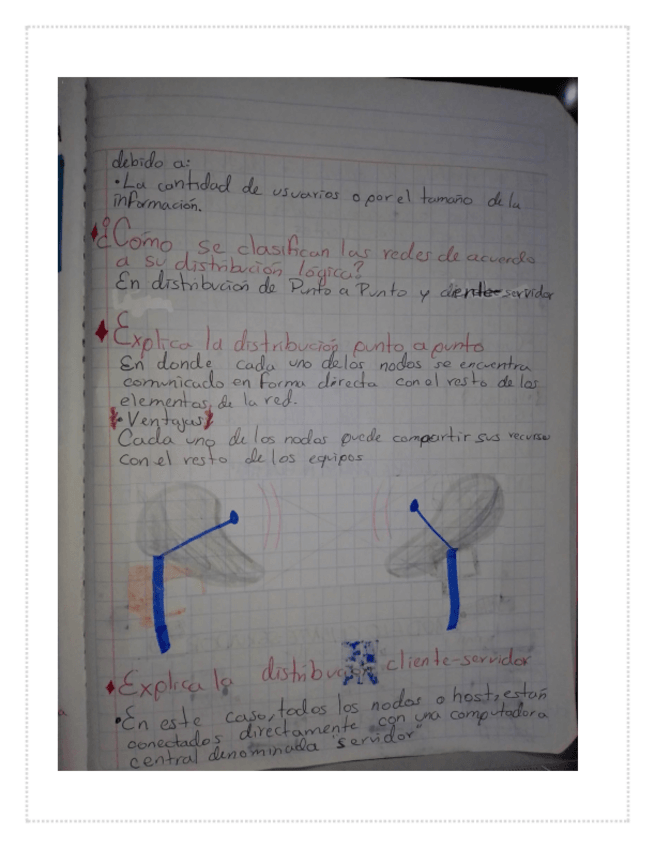 debido a:
•La cantidad de usuarios o por el tamaño de la
información.
¿Cómo se clasifican las redes de acuerdo
a su distribución lógica?
En distribución de Punto a Punto y servidor
Explica la distribución punto a punto
En donde cada uno de los nodos se encuentra
comunicado en forma directa con el resto de los
elementos de la red.
•Ventajas
Cada uno de los nodos puede compartir sus recurso
con el resto de los equipos
Explica la cliente-servidor
•En este caso, todos los nodos o host, estan
conectados directamente con una computadora
central denominada "servidor"